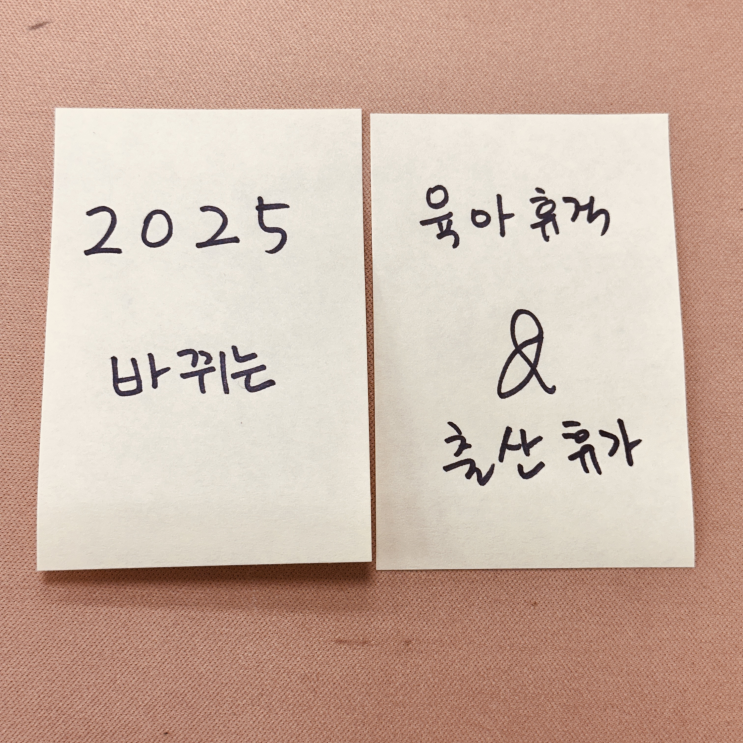 2025
바뀌는
육아휴직
&
출산휴가